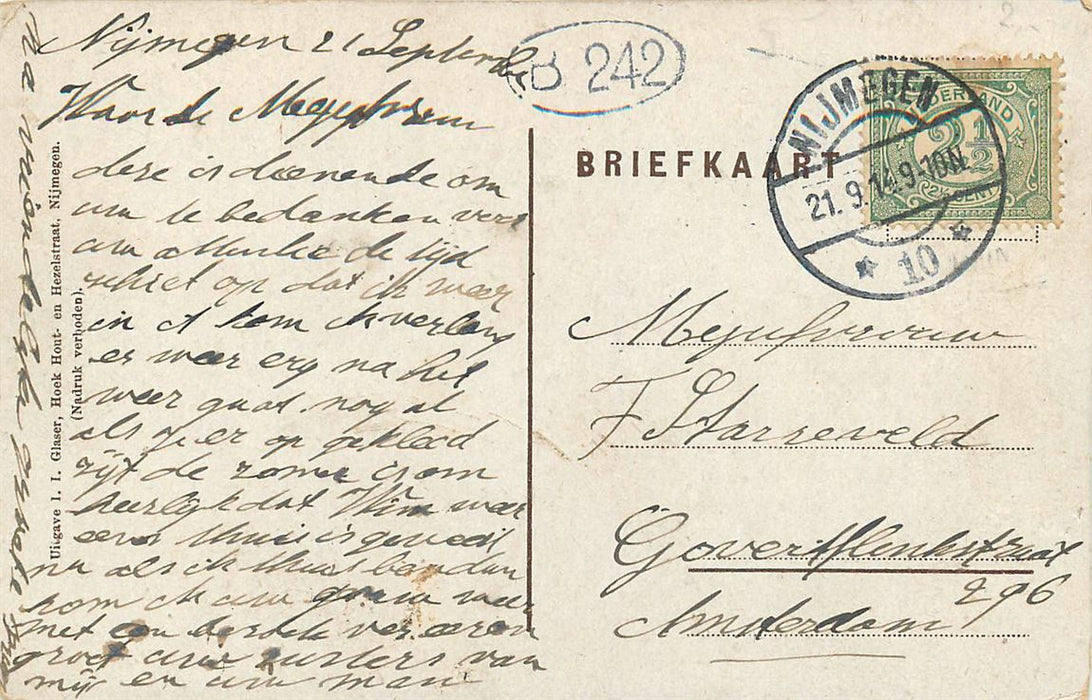 Nijmegen 21 September
Waarde Mejufvrouw
deze is dienende om
uw te bedanken voor
uw de tijd
schiet op dat ik weer
in A kom ik verlang
er weer erg na het
weer gaat nog al
als je er op gekleed
zijt de zomer is om
heerlijk dat Wim weer
eens thuis is geweest
nu als ik thuis ben dan
kom ik uw gauw weer
met een bezoek vereeren
groet uw zusters van
mij en uw man
na vriendelijk gegroet
Uitgave I. I. Glaser, Hoek Hout- en Hezelstraat, Nijmegen.
(Nadruk verboden).
B 242
BRIEFKAART
NIJMEGEN
21. 9. 14. 9-10N.
10
NEDERLAND
2½
CENT
Mejufvrouw
F Starreveld
Govert Flinkstraat
296
Amsterdam